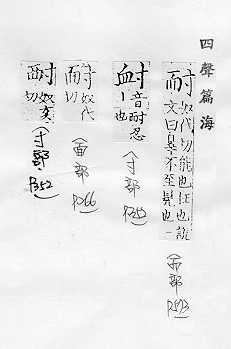 四聲篇海
耐 奴代切能也任也說
文曰辠不至髡也一
(而部)
音耐忍
也
(寸部)
奴代
切
(面部)
P.266
奴亥
切
(寸部)
P.352